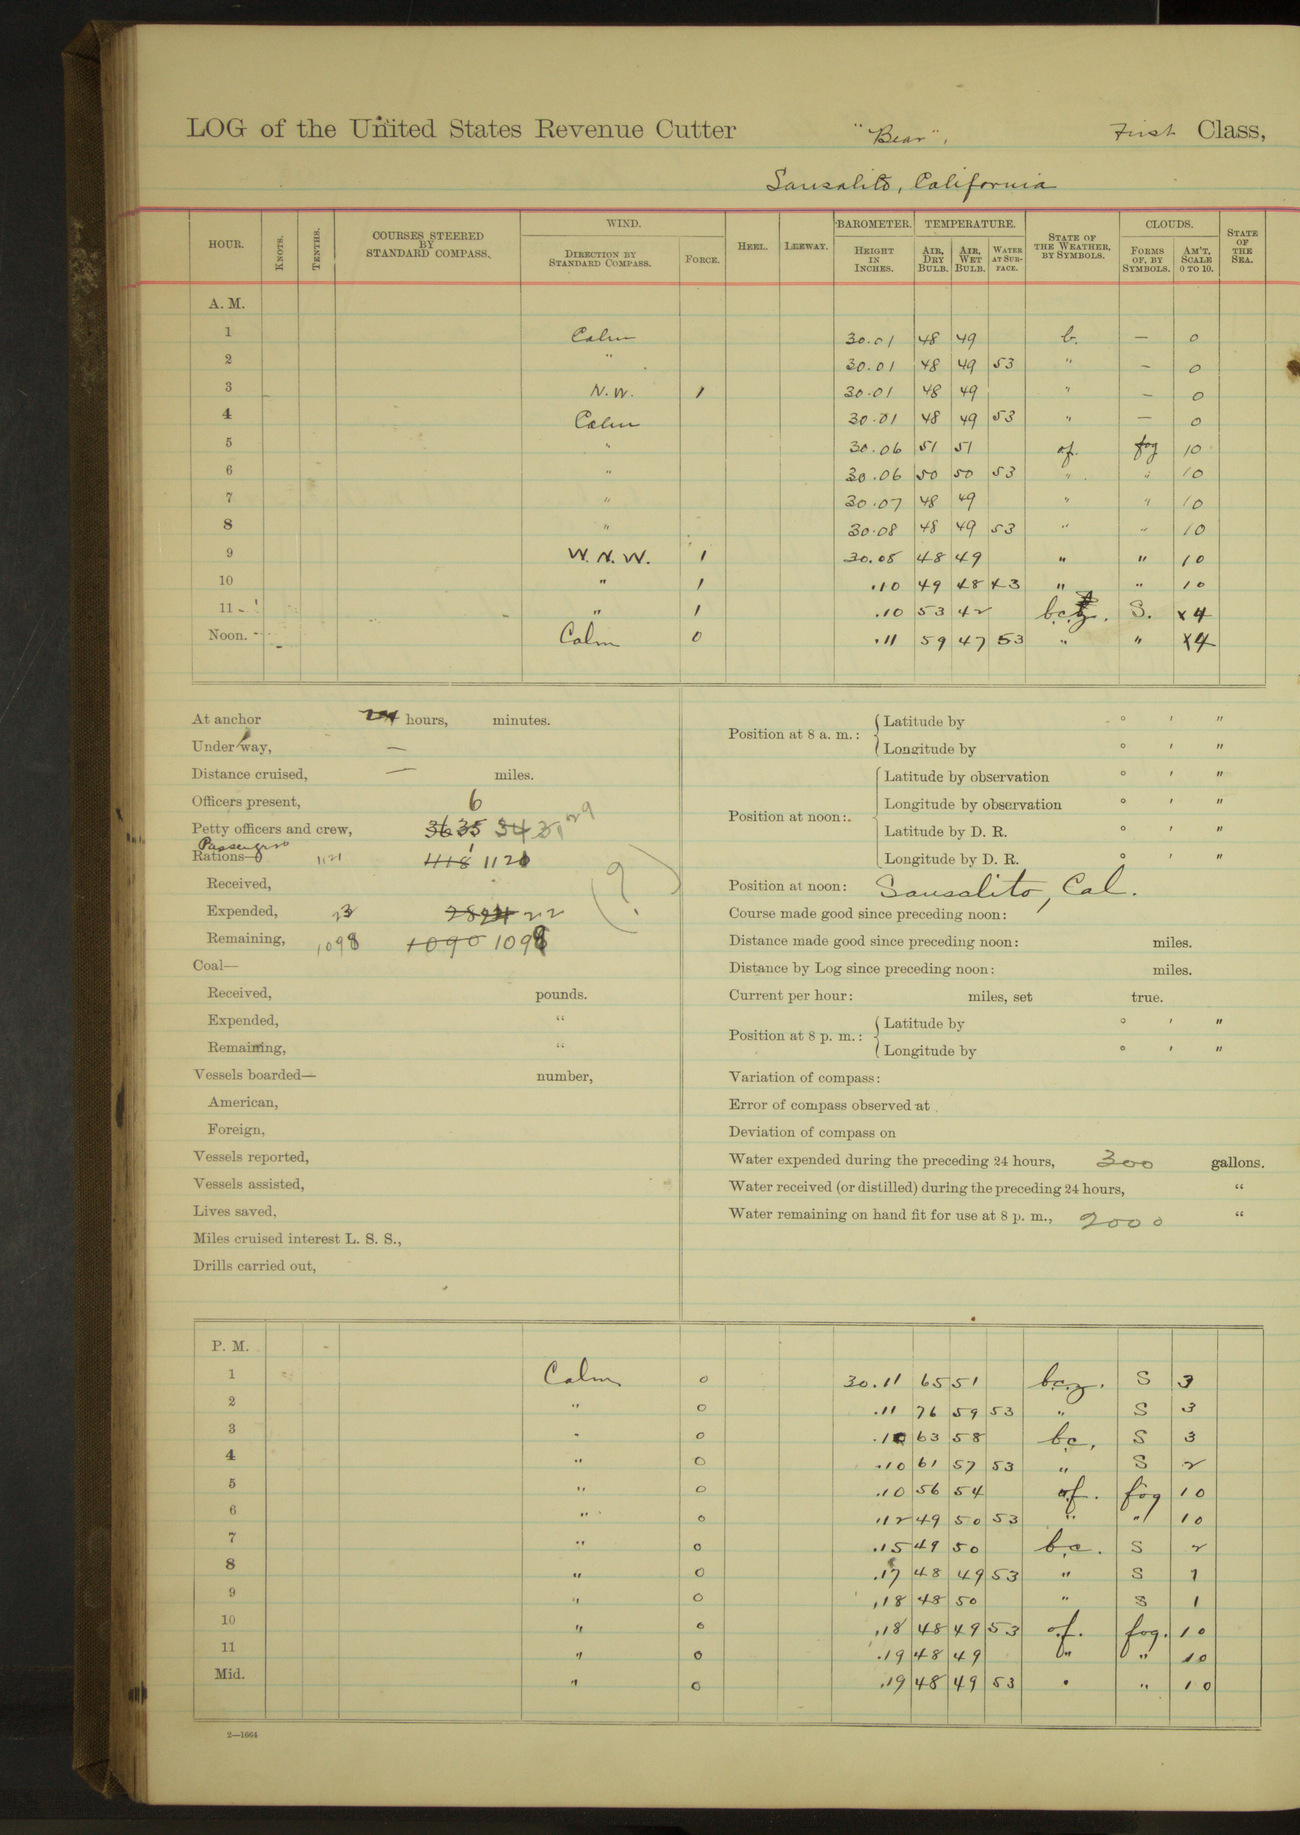 LOG of the United States Revenue Cutter "Bear", First Class,
Sausalito, California
HOUR. KNOTS. TENTHS. COURSES STEERED BY STANDARD COMPASS. WIND. DIRECTION BY STANDARD COMPASS. FORCE. HEEL. LEEWAY. BAROMETER. HEIGHT IN INCHES. TEMPERATURE. AIR, DRY BULB. AIR, WET BULB. WATER AT SURFACE. STATE OF THE WEATHER, BY SYMBOLS. CLOUDS. FORMS OF, BY SYMBOLS. AM'T, SCALE 0 TO 10. STATE OF THE SEA.
A. M.
1 Calm 30.01 48 49 b. — 0
2 " 30.01 48 49 53 " — 0
3 N.W. 1 30.01 48 49 " — 0
4 Calm 30.01 48 49 53 " — 0
5 " 30.06 51 51 of. fog 10
6 " 30.06 50 50 53 " " 10
7 " 30.07 48 49 " " 10
8 " 30.08 48 49 53 " " 10
9 W.N.W. 1 30.08 48 49 " " 10
10 " 1 .10 49 48 43 " " 10
11 " 1 .10 53 42 b.c.z. S. 4
Noon. Calm 0 .11 59 47 53 " " 4
At anchor 24 hours, minutes.
Under way, —
Distance cruised, — miles.
Officers present, 6
Petty officers and crew, 36 35 34 31 29
Passengers 1
Rations— 1121 418 1120
Received,
Expended, 23 28 24 22
(?)
Remaining, 1098 1090 1098
Coal—
Received, pounds.
Expended, "
Remaining, "
Vessels boarded— number,
American,
Foreign,
Vessels reported,
Vessels assisted,
Lives saved,
Miles cruised interest L. S. S.,
Drills carried out,
Position at 8 a. m.: Latitude by ° ′ ″
Longitude by ° ′ ″
Position at noon: Latitude by observation ° ′ ″
Longitude by observation ° ′ ″
Latitude by D. R. ° ′ ″
Longitude by D. R. ° ′ ″
Position at noon: Sausalito, Cal.
Course made good since preceding noon:
Distance made good since preceding noon: miles.
Distance by Log since preceding noon: miles.
Current per hour: miles, set true.
Position at 8 p. m.: Latitude by ° ′ ″
Longitude by ° ′ ″
Variation of compass:
Error of compass observed at
Deviation of compass on
Water expended during the preceding 24 hours, 300 gallons.
Water received (or distilled) during the preceding 24 hours, "
Water remaining on hand fit for use at 8 p. m., 2000 "
P. M.
1 Calm 0 30.11 65 51 b.c.z. S 3
2 " 0 .11 76 59 53 " S 3
3 " 0 .10 63 58 bc. S 3
4 " 0 .10 61 57 53 " S 2
5 " 0 .10 56 54 of. fog 10
6 " 0 .12 49 50 53 " " 10
7 " 0 .15 49 50 b.c. S 2
8 " 0 .17 48 49 53 " S 1
9 " 0 .18 48 50 " S 1
10 " 0 .18 48 49 53 o.f. fog. 10
11 " 0 .19 48 49 " " 10
Mid. " 0 .19 48 49 53 " " 10
2—1664